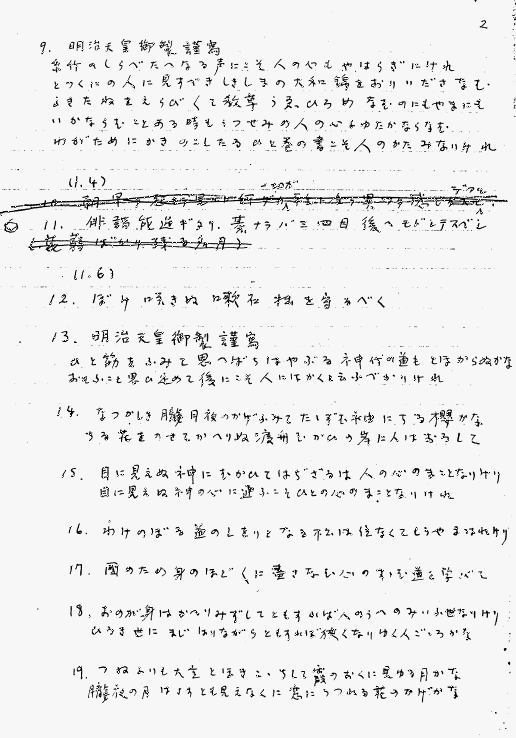 2
9. 明治天皇御製謹寫
糸竹のしらべたへなる声にこそ人の心もやはらぎにけれ
とつくにの人に見すべきしきしまの大和錦をおりいださなむ
よきたねをえらびくて教草うゑひろめなむのにもやまにも
いかならむことある時もうつせみの人の心よゆたかならなむ
わがためにかきのこしたるひと巻の書こそ人のかたみなりけれ
(1.4)
11. 俳諧 四目後へもどとテスベシ
(1.6)
12. ぼけ咲きぬ
13. 明治天皇御製謹寫
ひと筋をふみて思へばちはやぶる神代の道もとほからぬかな
おもふこと思ひ定めて後にこそ人にはかくと云ふべかりけれ
14. なつかしき朧月夜のかげふみてたゝずむ袖にちる櫻かな
ちる花をのせてかへりぬ渡舟むかひの岸に人はおろして
15. 目に見えぬ神にむかひてはぢざるは人の心のまことなりけり
目に見えぬ神の心に通ふこそひとの心のまことなりけれ
16. わけのぼる道のしをりとなる
17. 國のため身のほどくに盡さなむ心の 道を学びて
18. おのが身はかへりみずしてともすれば人のうへのみいふ世なりけり
ひろき世にまじはりながらともすれば狭くなりゆく人ごころかな
19. つねよりも大空とほきこゝちして霞のおくに見ゆる月かな
朧夜の月はさすとも見えなくに窓にうつれる花のかげかな